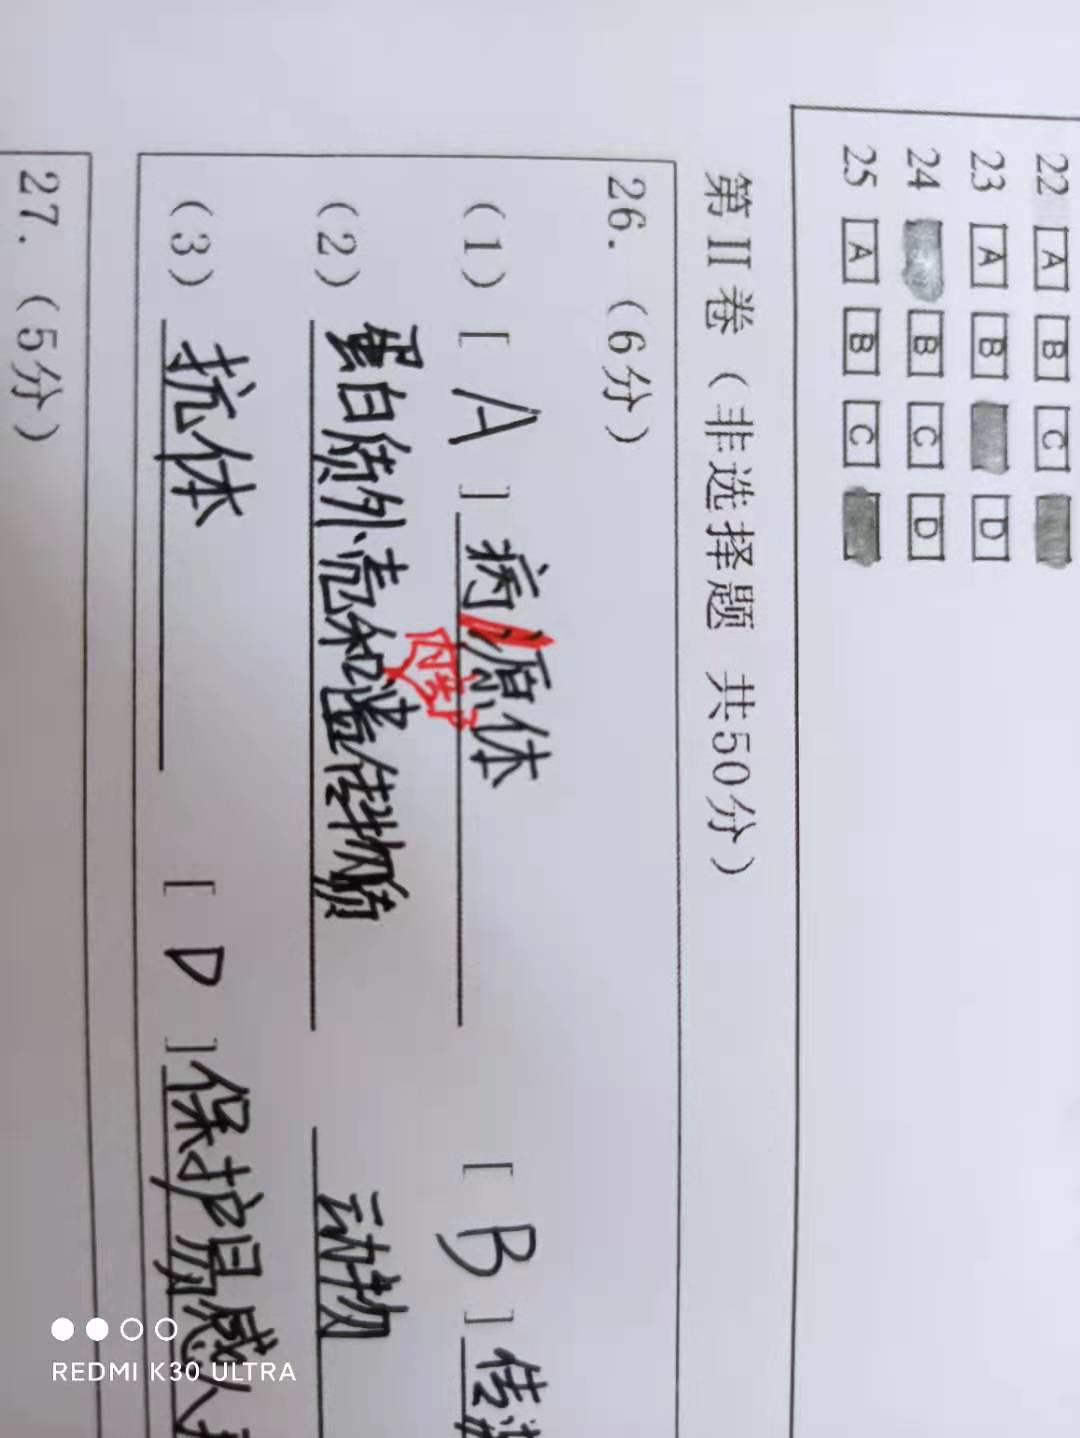 22 [A] [B] [C]
23 [A] [B] [D]
24 [B] [C] [D]
25 [A] [B] [C]
第II卷（非选择题 共50分）
26.（6分）
（1）[ A ] 病原体 [ B ] 传染
（2）蛋白质外壳和遗传物质 动物
内部
（3）抗体 [ D ] 保护易感人群
27.（5分）
REDMI K30 ULTRA